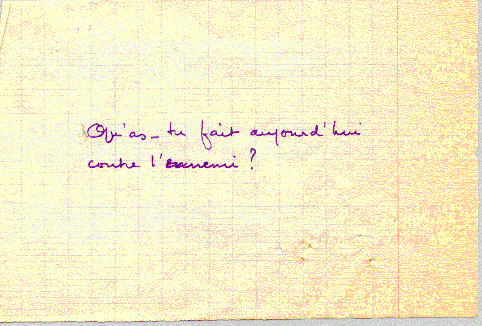 Qu'as-tu fait aujourd'hui
contre l'ennemi ?